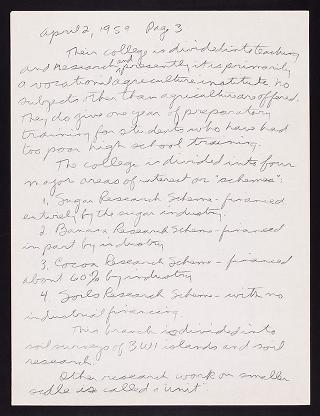 April 2, 1959 Pag 3
Their college is divided into teaching
and research and presently it is primarily
a vocational agriculture institute. No
subjects other than agriculture are offered.
They do give one year of preparatory
training for students who have had
too poor high school training.
The college is divided into four
major areas of interest or "schemes":
1. Sugar Research Scheme - financed
entirely by the sugar industry.
2. Banana Research Scheme - financed
in part by industry
3. Cocoa Research Scheme - financed
about 60% by industry
4. Soils Research Scheme - with no
industrial financing.
This branch is divided into
soil surveys of BWI islands and soil
research.
Other research work on smaller
scale is called a "unit"